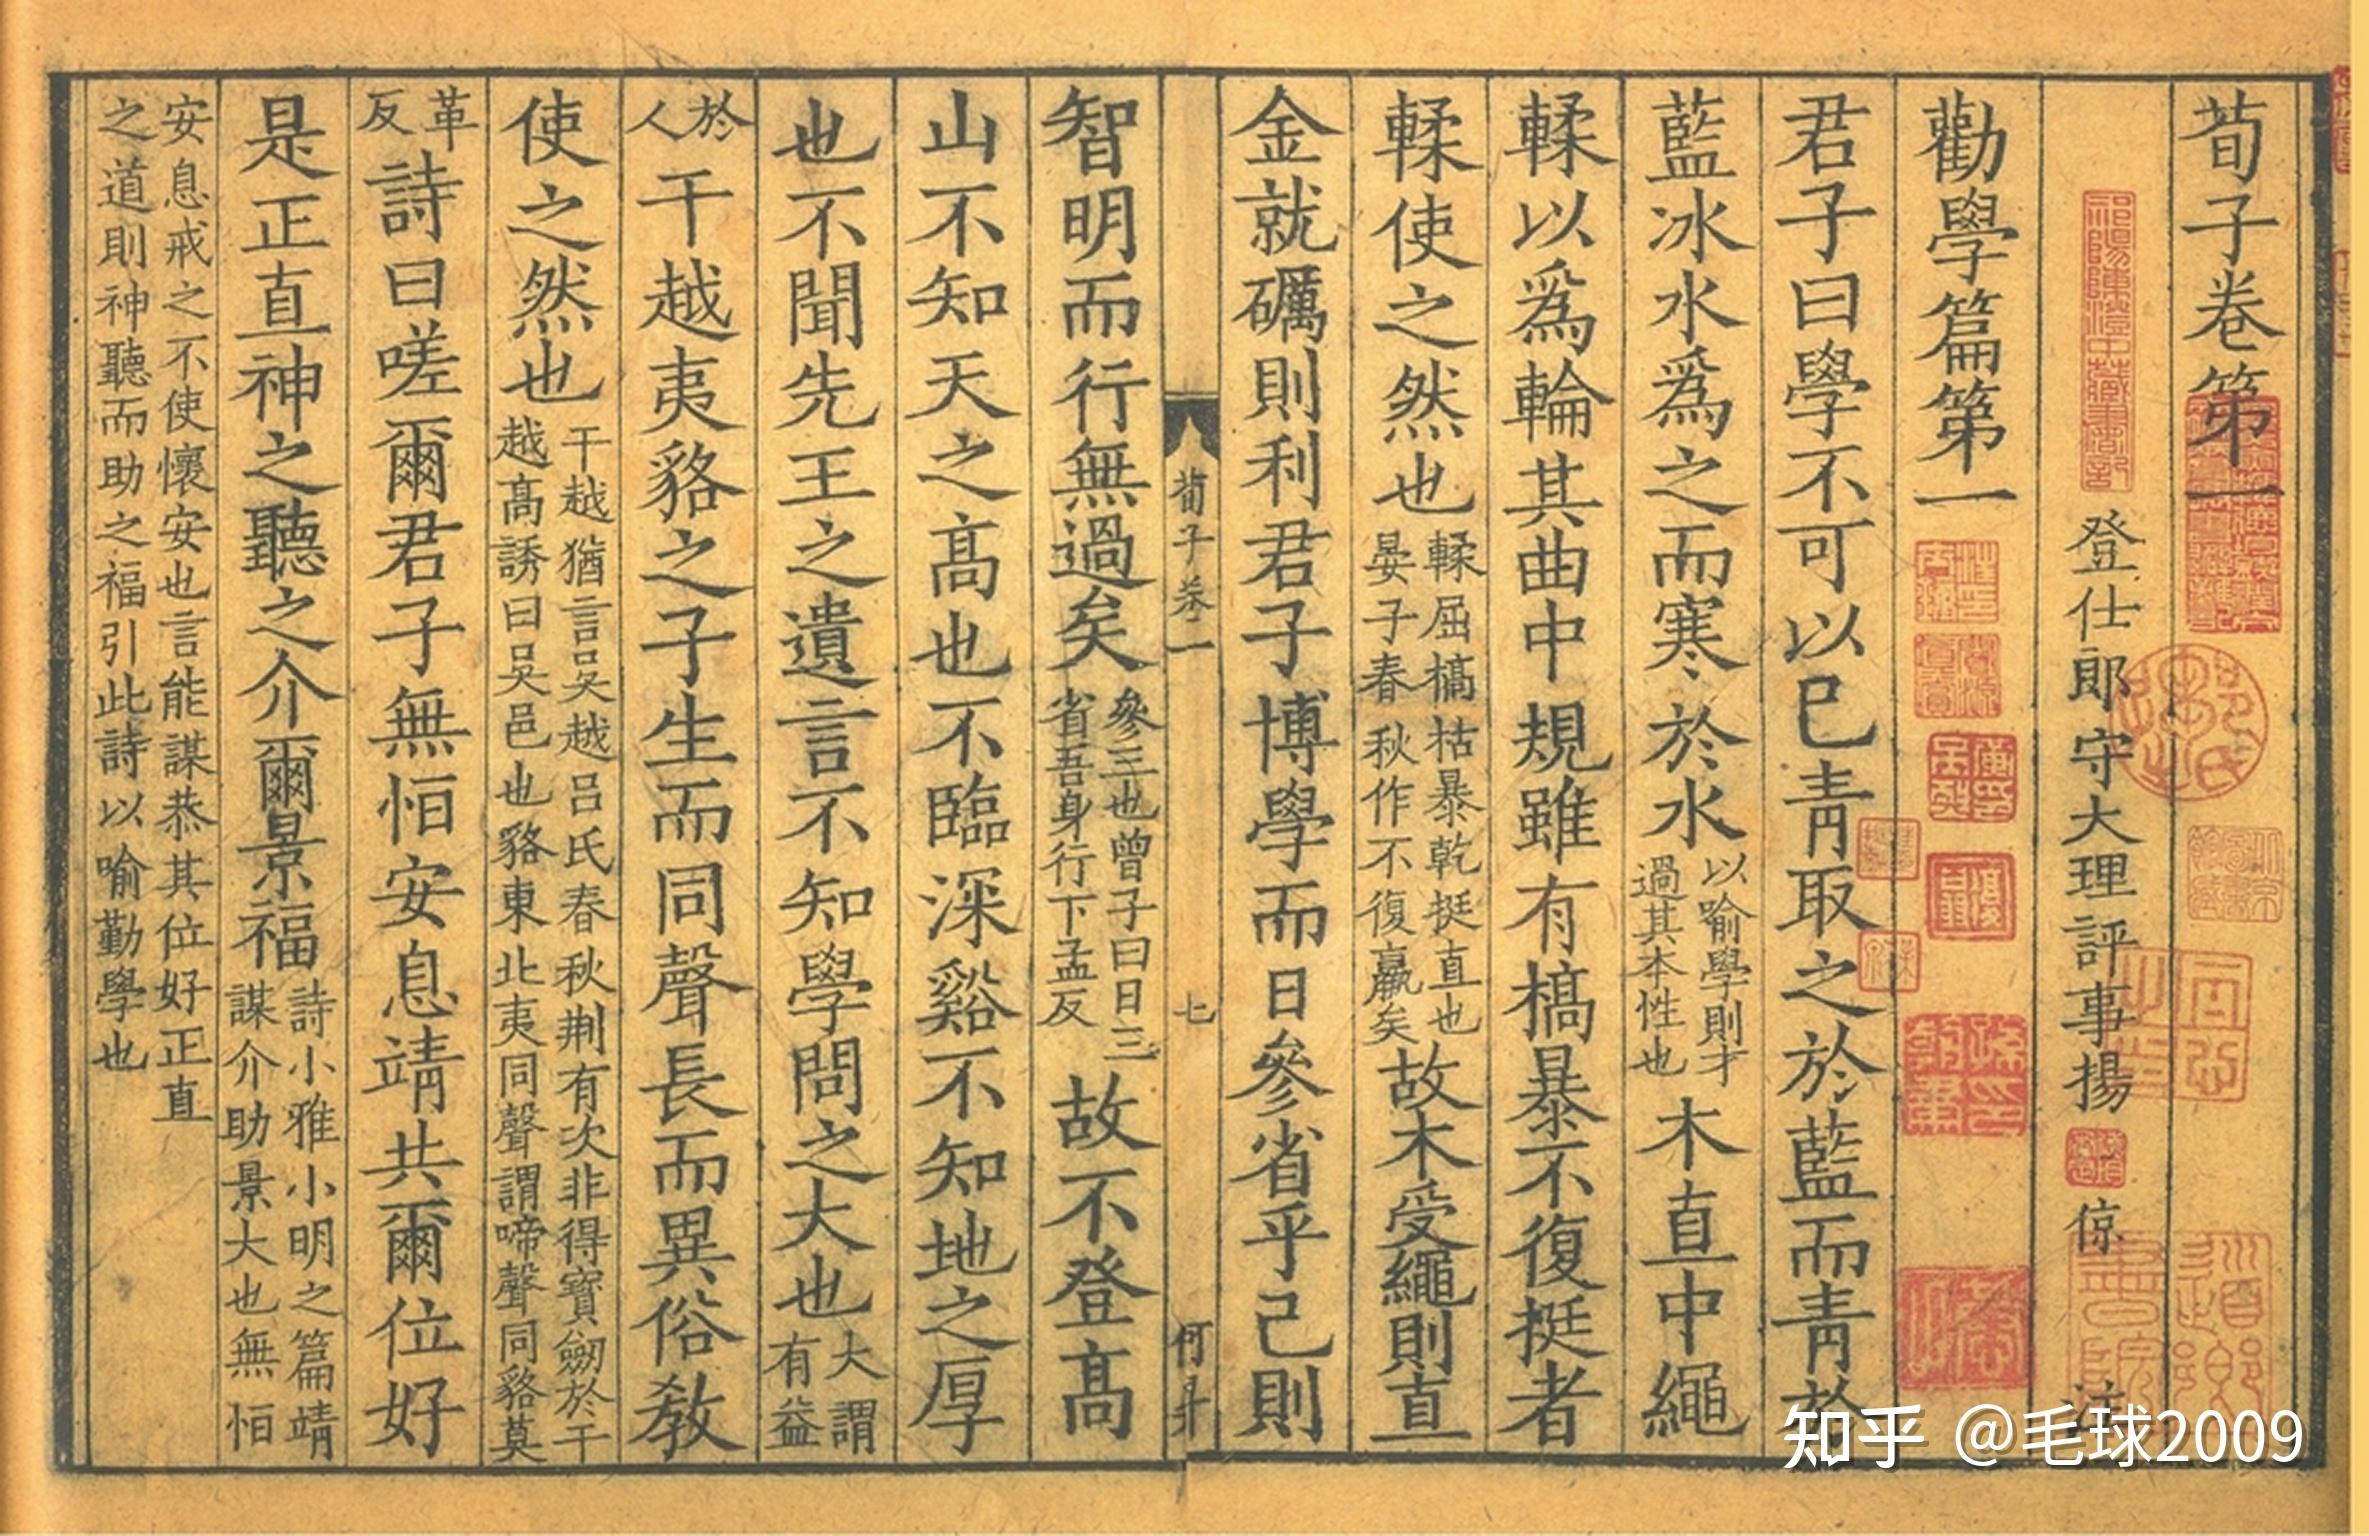 荀子卷第一
登仕郎守大理評事揚倞注
勸學篇第一
君子曰學不可以已青取之於藍而青於
藍冰水爲之而寒於水以喻學則才過其本性也木直中繩
輮以爲輪其曲中規雖有槁暴不復挺者
輮使之然也輮屈槁枯暴乾挺直也晏子春秋作不復羸矣故木受繩則直
金就礪則利君子博學而日參省乎己則
荀子卷一
七
智明而行無過矣參三也曾子曰日三省吾身行下孟反故不登高
山不知天之高也不臨深谿不知地之厚
也不聞先王之遺言不知學問之大也大謂有益
於人干越夷貉之子生而同聲長而異俗教
使之然也干越猶言吳越呂氏春秋荆有次非得寶劒於干越高誘曰吳邑也貉東北夷同聲謂啼聲同貉莫
革反詩曰嗟爾君子無恒安息靖共爾位好
是正直神之聽之介爾景福詩小雅小明之篇靖謀介助景大也無恒
安息戒之不使懷安也言能謀恭其位好正直之道則神聽而助之福引此詩以喻勤學也
知乎 @毛球2009